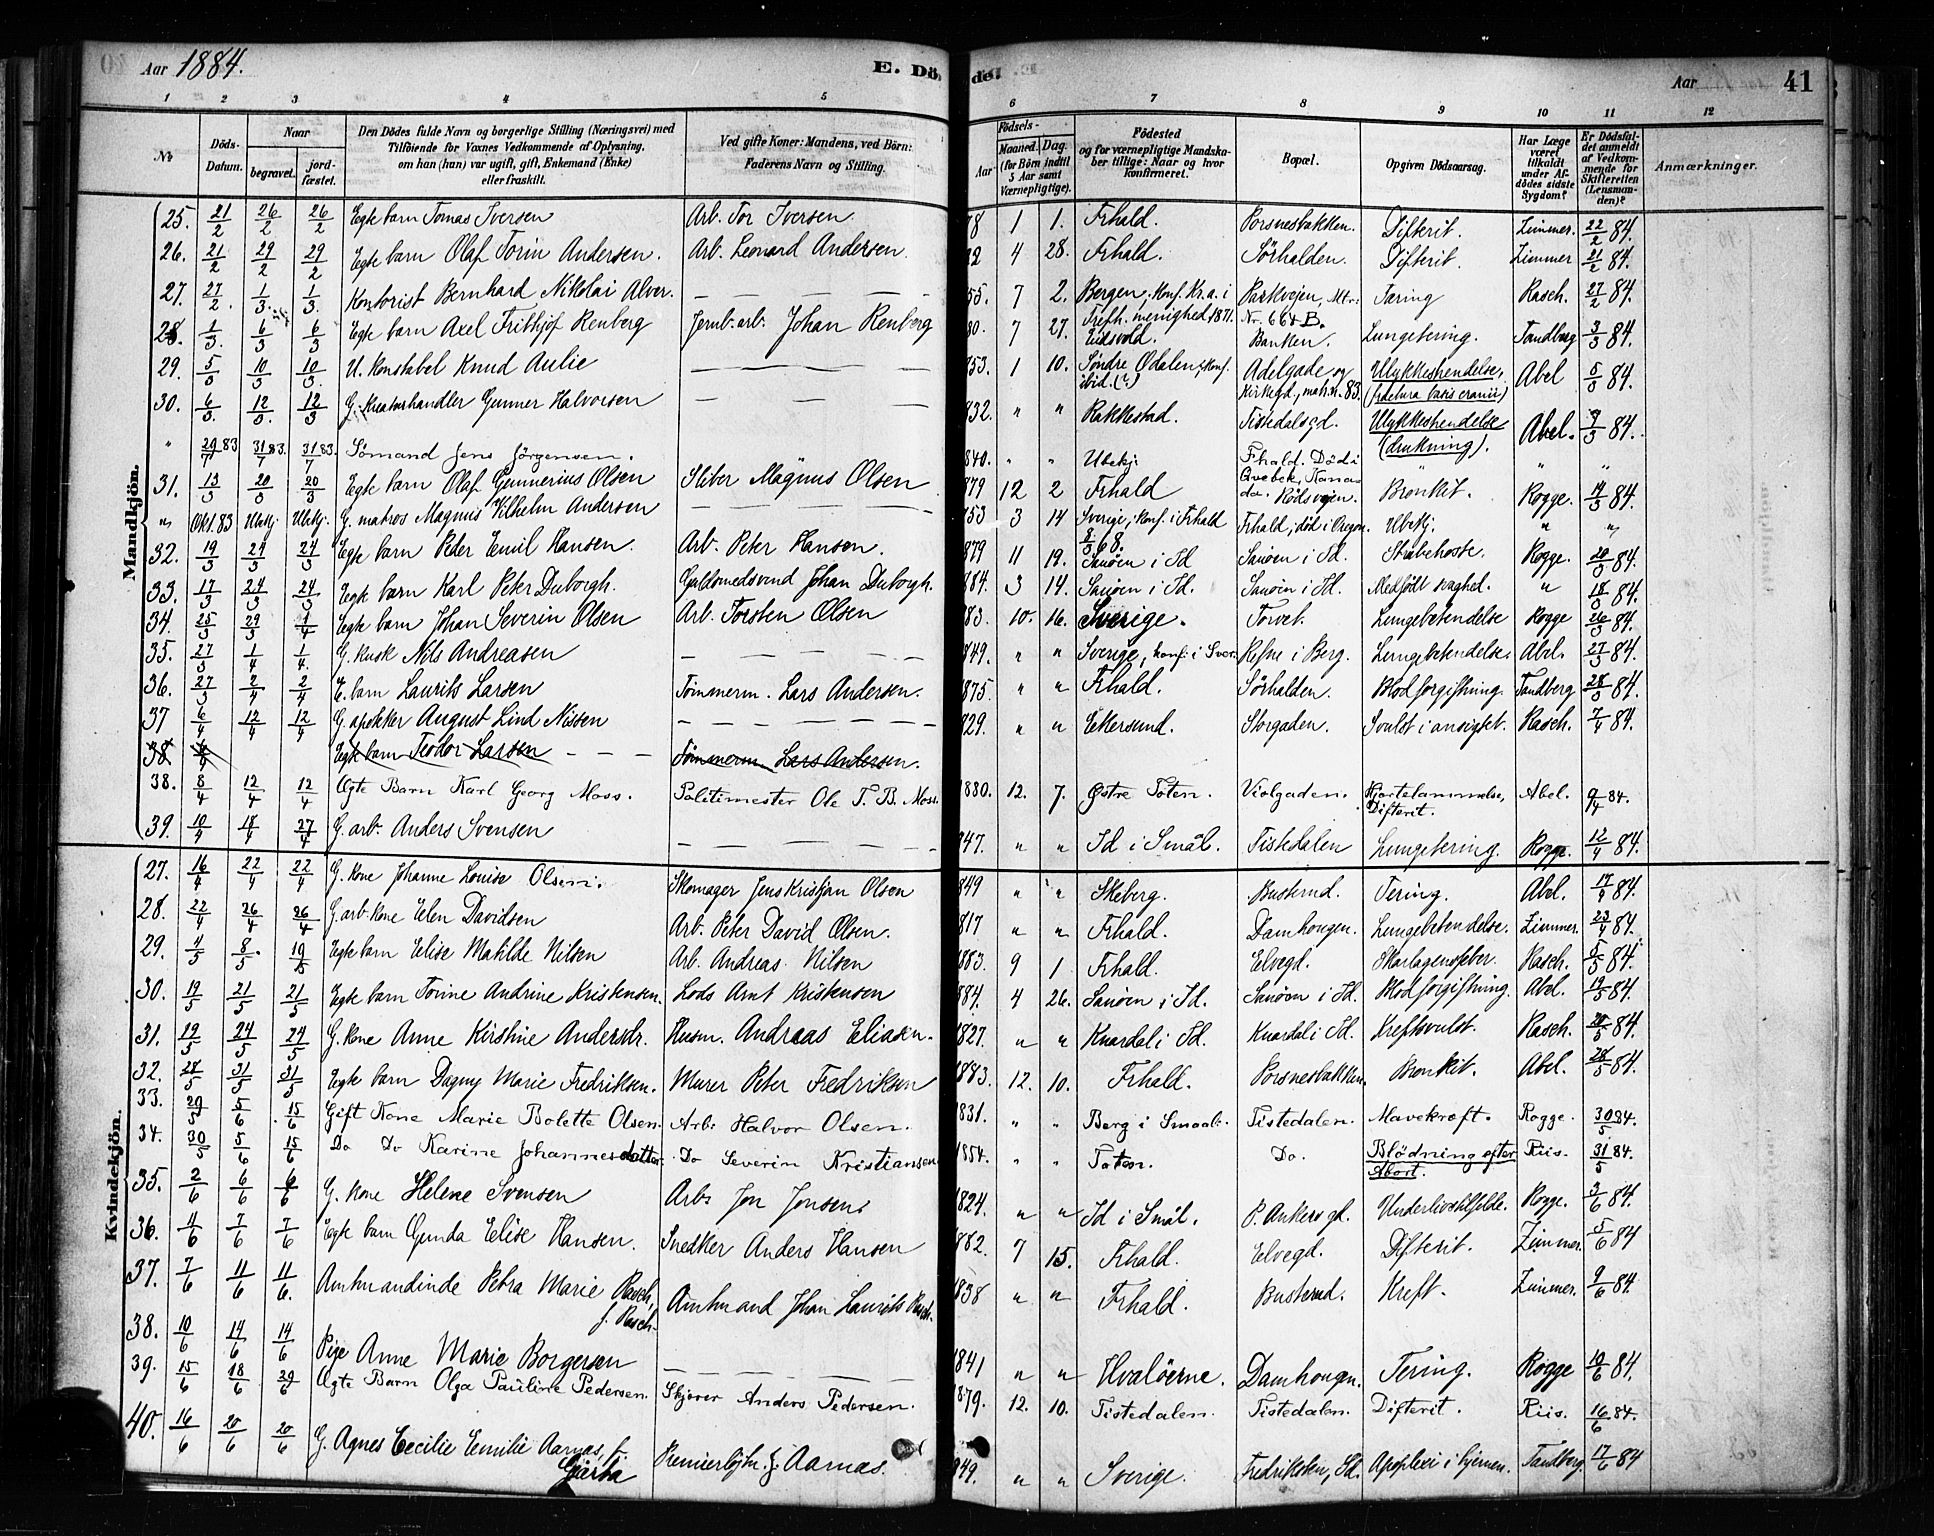 Aar 1884. E. Dö- de. Aar 41
1 2 3 4 5 6 7 8 9 10 11 12
No Döds-Datum. Naar begravet. jord-fæstet. Den Dödes fulde Navn og borgerlige Stilling (Næringsvei) med Tilföiende for Voxnes Vedkommende af Oplysning, om han (hun) var ugift, gift, Enkemand (Enke) eller fraskilt. Ved gifte Koner: Mandens, ved Börn: Faderens Navn og Stilling. Födsels- Aar Maaned. Dag. (for Börn indtil 5 Aar samt Værnepligtige). Födested og for værnepligtige Mandska-ber tillige: Naar og hvor konfirmeret. Bopæl. Opgiven Dödsaarsag. Har Læge været tilkaldt under Af-dödes sidste Sygdom? Er Dödsfal-det anmeldt af Vedkom-mende for Skifteretten (Lensman-den)? Anmærkninger.
Mandkjön.
25. 21/2 26/2 26/2 Egte barn Tomas Iversen Arb. Tor Iversen 78 1 1. Frhald. Porsnesbakken. Difterit. Zimmer. 22/2 84.
26. 21/2 29/2 29/2 Egte barn Olaf Torin Andersen. Arb. Leonard Andersen 82 4 28. Frhald. Sörhalden. Difterit. Zimmer 21/2 84.
27. 27/2 1/3 1/3 Kontorist Bernhard Nikolai Alver. — — — 55. 7 2. Bergen, Konf. Kr.a. i Trefh. menighed 1871. Parkvejen, Mt. Nr. 664 B. Tæring Rasch. 27/2 84.
28. 1/3 6/3 6/3 Egte barn Axel Frithjof Renberg Jernb. arb. Johan Renberg 80. 7 27. Eidsvold. Banken. Lungetæring. Tandberg 3/3 84.
29. 5/3 10/3 10/3 U. Konstabel Knud Aulie — — — 853. 1 10. Søndre Ødalen, Konf. ibid. (?) Adelgade og Kirkegd., matr.n. 83. Ulykkeshendelse, (fractura basis cranii) Abel 5/3 84.
30. 6/3 12/3 12/3 G. Kreaturhandler Gunner Halvorsen — — — 832. " " Rakkestad. Tistedalsgd. Ulykkeshendelse (drukning). Abel. 7/3 84.
" 29/7 83 31/7 83. 31/7 83. Sömand Jens Jörgensen. 840. " " Ubekj. Frhald. Död i Qvebek, Kanada. " "
31. 13/3 20/3 20/3 Egte barn Olaf Gunnerius Olsen Sliber Magnus Olsen 879 12 2 Frhald Rödsvejen. Bronkit. Rogge. 14/3 84.
" Okt. 83 Ubekj. Ubekj. G. matros Magnus Vilhelm Andersen — — — 853 3 14 Sverige, konf. i Frhald 8/3 68. Frhald, död i Oregon. Ubekj. " "
32. 19/3 24/3 24/3 Egte barn Peder Emil Hansen. Arb. Peter Hansen. 879 11 19. Sauøen i Id Sauøen i Id. Strubehoste. Rogge. 20/3 84.
33. 17/3 24/3 24/3 Egte barn Karl Peter Duborgh. Guldsmedsvend Johan Duborgh. 884. 3 14. Sauøen i Id. Sauøen i Id. Medfödt svaghed. " 18/3 84.
34. 25/3 29/3 1/4 Egte barn Johan Severin Olsen Arb. Torsten Olsen 83. 10. 16. Sverige. Torvet. Lungebetendelse Rogge 26/3 84.
35. 27/3 1/4 1/4. G. Kusk Nils Andreasen — — — 849. " " Sverige, konf. i Sver. Refne i Berg. Lungebetendelse. Abel. 27/3 84.
36. 27/3 2/4 2/4 E. barn Laurits Larsen Tömmerm. Lars Andersen. 1875 " " Frhald. Sörhalden. Blodforgiftning. Tandberg 28/3 84.
37 6/4 12/4 12/4 G. apotekker August Lind Nissen — — — 829. " " Ekersund. Storgaden. Svulst i ansigtet. Rasch. 7/4 84.
38 Egte barn Teodor Larsen — — — Tömmerm. Lars Andersen.
38. 8/4 12/4 12/4 Ægte Barn Karl Georg Moss. Politimester Ole T. B. Moss. 1880. 12. 7. Østre Toten. Violgaden. Hjertelammelse, Difterit. Abel. 9/4 84.
39. 10/4 18/4 27/4 G. arb. Anders Svensen — — — 847. " " Id i Smål. Tistedalen Lungetæring. Rogge. 12/4 84.
Kvindekjön.
27. 16/4 22/4 22/4 G. Kone Johanne Louise Olsen. Skomager Jens Kristjan Olsen 849 " " Skeberg. Busterud. Tæring. Abel. 17/4 84.
28. 22/4 26/4 26/4 G. arb. kone Elen Davidsen Arb. Peter David Olsen. 817 " " Frhald. Damhougen. Lungebetendelse. Zimmer. 23/4 84.
29. 4/5 8/5. 19/5 Egte barn Elise Matilde Nilsen Arb. Andreas Nilsen 883. 9 1 Frhald. Elvegd. Skarlagensfeber. Rasch. 5/5 84.
30. 19/5 21/5 21/5 Egte barn Torine Andrine Kristensen. Lods Arnt Kristensen 884. 4 26. Sauøen i Id. Sauøen i Id. Blodforgiftning. Abel. 19/5 84.
31. 19/5 24/5 24/5 G. Kone Anne Kirstine Andersdr. Husm. Andreas Eliasen. 1827. " " Knardal i Id. Knardal i Id. Kreftsvulst. Rasch. 20/5 84.
32. 28/5 31/5 31/5 Egte barn Dagny Marie Fredriksen. Murer Peter Fredriksen 1883. 12. 10. Frhald. Porsnesbakken. Bronkit. Abel. 28/5 84.
33. 29/5 5/6 15/6 Gift Kone Marie Bolette Olsen. Arb: Halvor Olsen. 1831. " " Berg i Smaal. Tistedalen. Mavekræft. Rogge. 30/5 84.
34. 30/5 5/6 15/6 Do Do Karine Johannesdatter. Do Severin Kristiansen 1854. " " Toten. Do. Blödning efter Abort. Riis. 31/5 84.
35. 2/6 6/6 6/6 G. Kone Helene Svensen Arb. Jon Jonsen. 1824. " " Id i Smål. P. Ankers gd. Underlivstilfelde. Rogge. 3/6 84.
36. 4/6 7/6 7/6 Egte barn Gunda Elise Hansen. Snedker Anders Hansen 882. 7 15. Frhald. Elvegd. Difterit. Zimmer. 5/6 84
37. 7/6 11/6 11/6. Amtmandinde Petra Marie Rasch, f. Rasch Amtmand Johan Laurits Rasch. 1838 " " Frhald. Busterud. Kreft. Zimmer. 9/6 84.
38. 10/6 14/6 14/6 Pige Anne Marie Borgersen — — — 1841 " " Hvaløerne. Damhougen. Tæring. Rogge 10/6 84.
39. 15/6 18/6 29/6 Ægte Barn Olga Pauline Pedersen. Skjærer Anders Pedersen. 1879. 12. 10. Tistedalen. Tistedalen. Difterit. Riis. 16/6 84.
40. 16/6 20/6 20/6 G. Agnes Cecilie Emilie Aarnas, f. Premierløjtn. J. Aarnas. 849. " " Sverige. Fredriksten, Id. Apoplexi i hjernen. Tandberg. 17/6 84